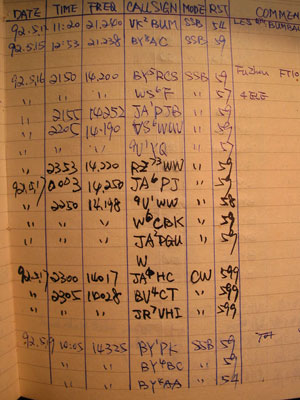 DATE TIME FREQ CALLSIGN MODE RST COMMEN
92.5.12 11:20 21,240 VK²BUM SSB 54
92.5.15 12:53 21,238 BY⁸AC SSB 59
92.5.16 2150 14,200 BY⁵RCS SSB 59 Fuzhou FT10
" " " WS⁶F " 57
" 2155 14252 JA¹PJB " 59
" 2205 14.190 VS⁶WUV " 59
" " " 9V¹YQ " 57
" 2353 14,220 RZ⁷³WW " 59
92.5.17 0003 14,250 JA⁶PJ " 59
" 2250 14.198 9V¹WW " 58
" " " W⁶CBK " 59
" " " JA²PGU " 57
W
92.5.17 2300 14017 JA⁴HC CW 599
" 2305 14028 BV⁴CT " 599
" " " JR⁷VHI " 599
14325 BY¹PK SSB 59
" " " BY⁴BC " 59
" " " BY⁸AA " 54